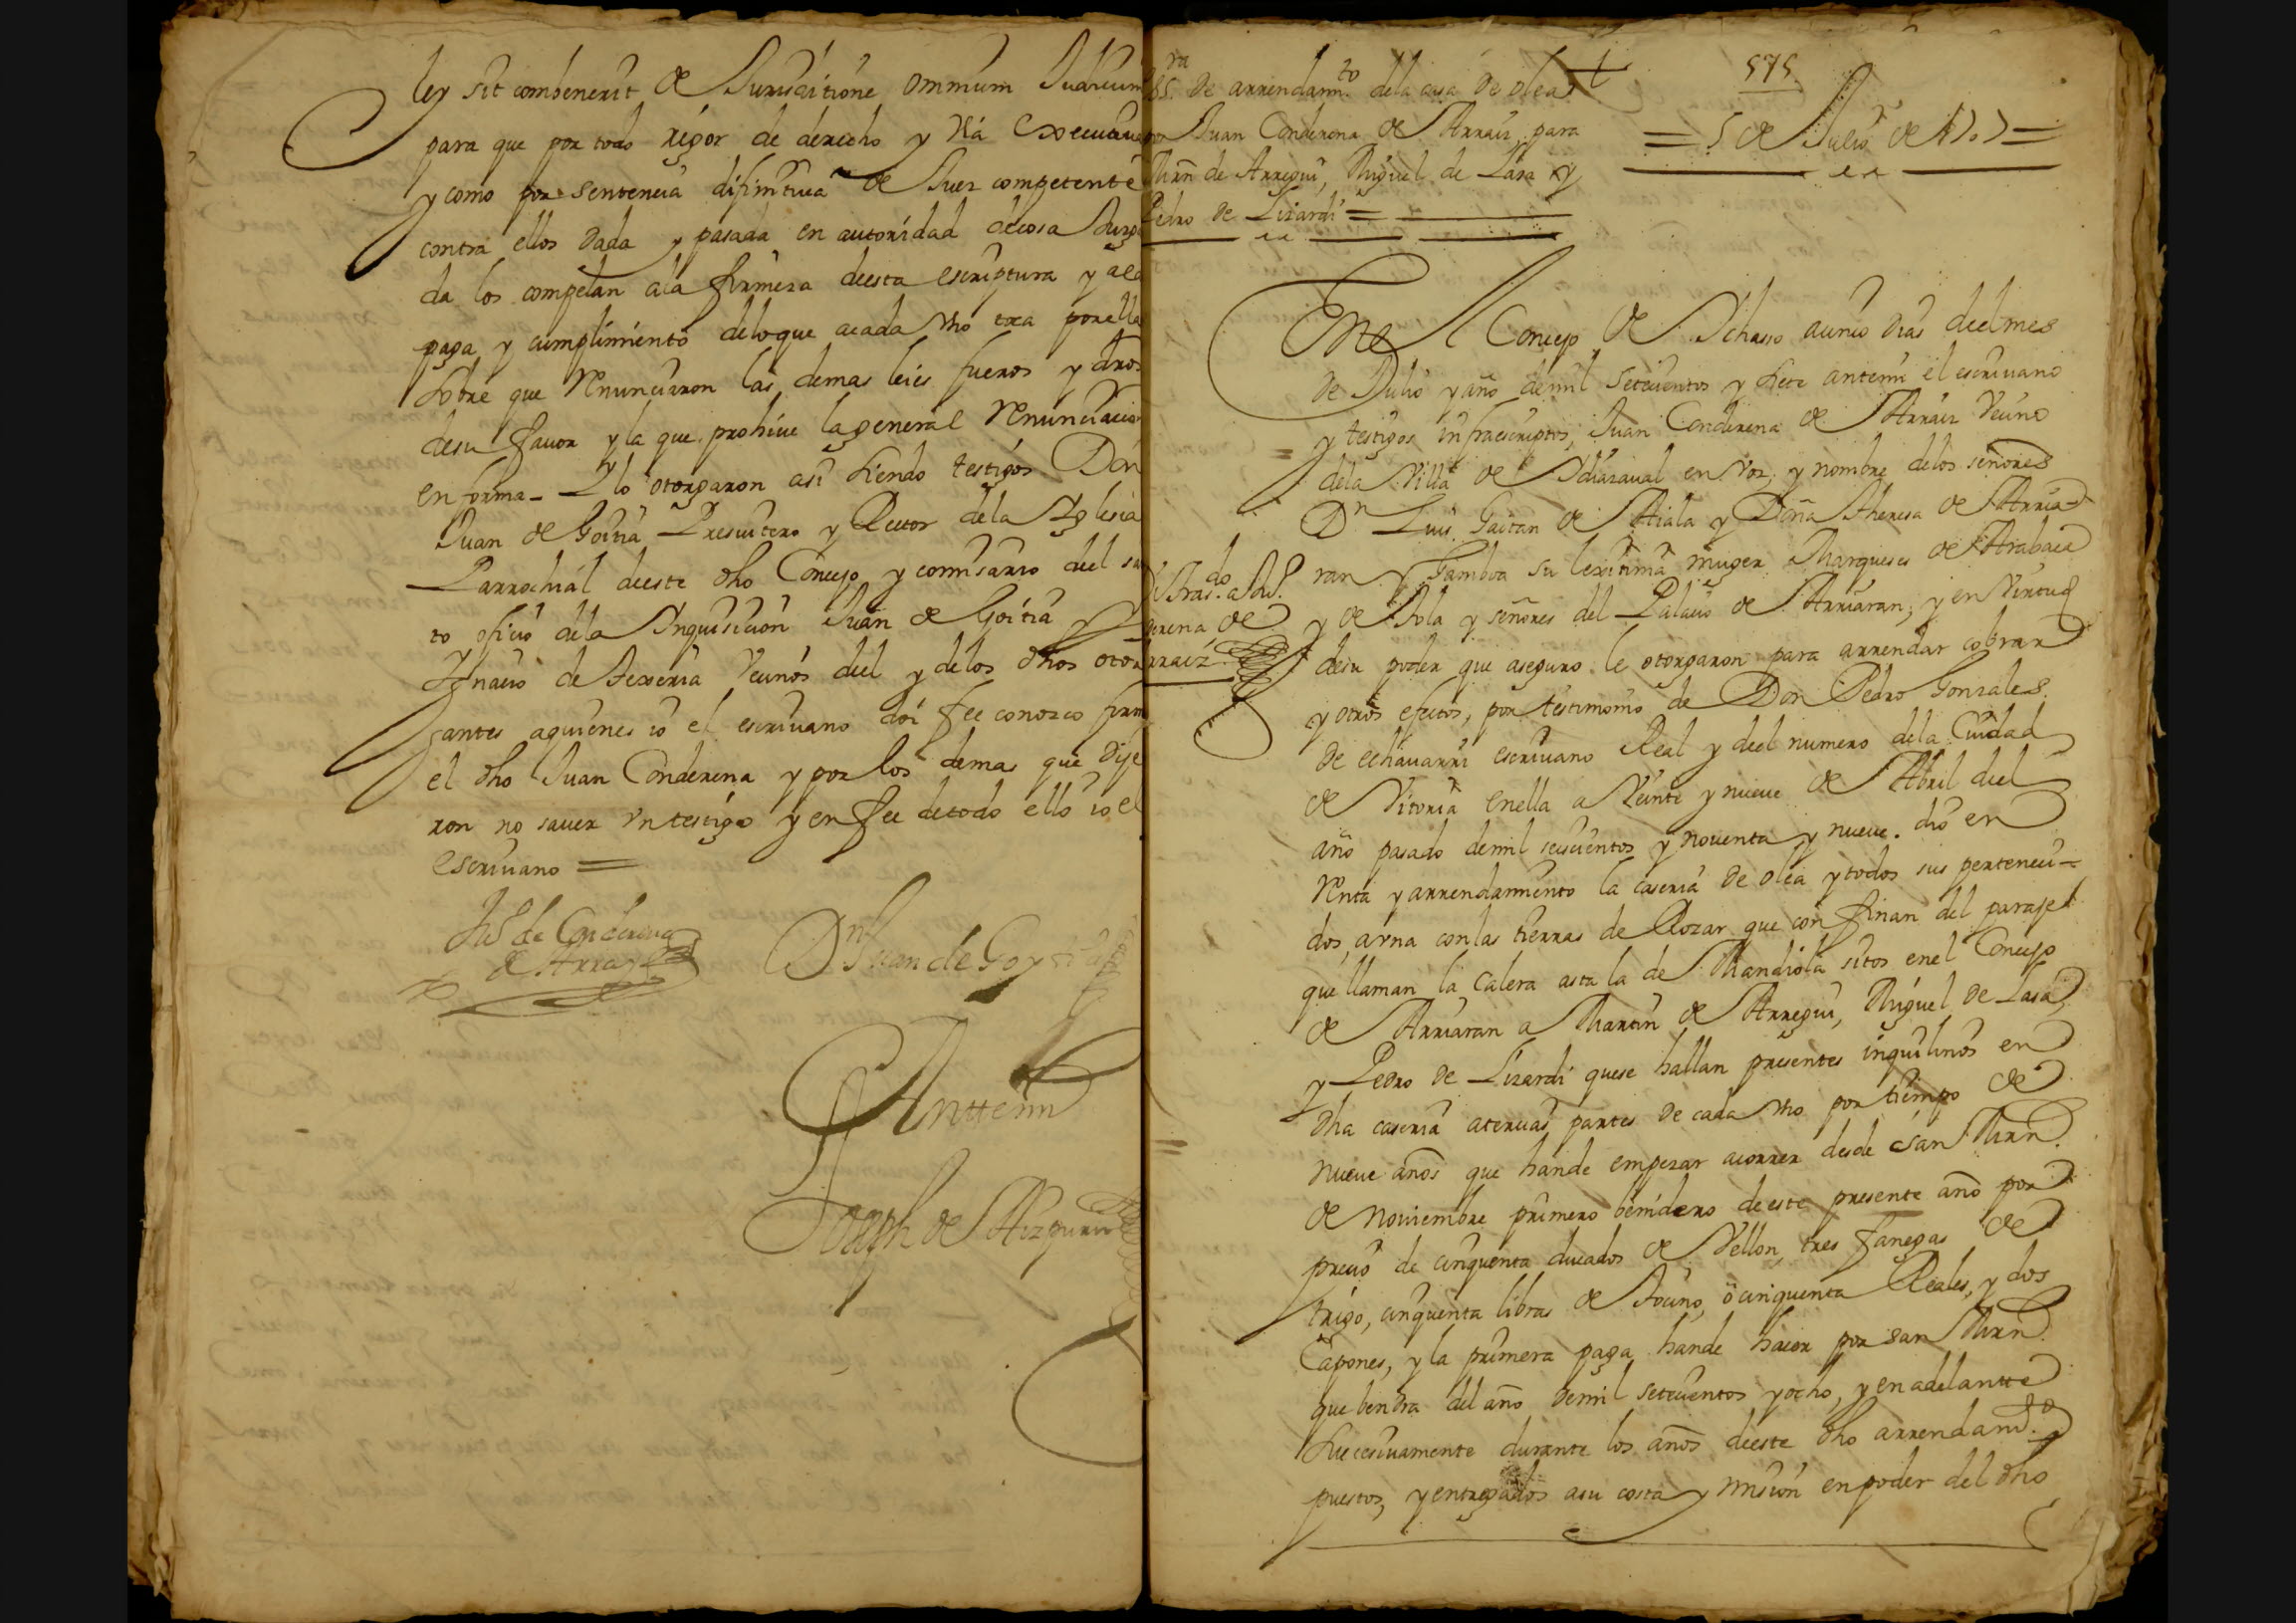 ley sit combenerit de Jurisditione ommium Judicum
para que por todo rigor de derecho y via executiva
y como por sentencia difinitiva de Juez competente
contra ellos dada y pasada en autoridad decosa Juzga
da los compelan ala firmeza deesta escriptura y ala
paga y cumplimiento deloque acada vno toca porella
sobre que Renunciaron las demas leies fueros y dros
desu favor y la que prohive la general Renunciacion
en forma - Y lo otorgaron asi siendo testigos Don
Juan de Goitia Presvitero y Rector dela Yglesia
Parrochial deeste dho Concejo y comisario del san
to oficio dela Inquisicion Juan de Goitia y
Ignacio de vecinos del y delos dhos otor
gantes aquienes io el escrivano doi fee conozco firmo
el dho Juan Conderena y por los demas que dije
ron no saver vn testigo y en fee detodo ello io el
escrivano =
Ju de Conderena
de Arraiz
Dn Juan de Goytia
Anttemi
Joseph de Aizpuru
ra de arrendamto dela casa de olea
Juan Conderena de Arraiz para
Mrn de Arregui, Miguel de Lasa y
Pedro de Lizardi =
575
= 5 de Julio de 1707 =
En el Concejo de Ichasso acinco dias deelmes
de Julio y año demil setecientos y siete antemi el escrivano
y testigos infraescriptos, Juan Conderena de Arraiz vecino
dela Villa de Idiazaval en voz y nombre delos señores
Dn Luis Gaitan de Aiala y Doña Theresa de Arria-
ran y Gamboa su lexitima muger Marqueses de Tabace
y de Sola y señores del Palacio de Arriaran, y en virtud
desu poder que aseguro le otorgaron para arrendar cobrar
y otros efectos, por testimonio de Don Pedro Gonzales
de echavarri escrivano Real y deel numero dela Ciudad
de Vitoria enella a Veinte y nueve de Abril deel
año pasado demil seiscientos y noventa y nueve. dio en
Renta y arrendamiento la caseria de olea y todos sus perteneci-
dos, arna conlas tierras de Rozar que confinan del paraje
que llaman la Calera asta la de Mandiola sitos enel Concejo
de Arriaran a Martin de Arregui, Miguel de Lasa,
y Pedro de Lizardi quese hallan presentes inquilinos en
dha caseria atercias partes de cada vno por tiempo de
nueve años que hande empezar acorrer desde san Mrn
de noviembre primero benidero deeste presente año por
precio de cinquenta ducados de Vellon, tres fanegas de
trigo, cinquenta libras de tocino, o cinquenta Reales, y dos
Capones, y la primera paga hande hacer por san Mrn
que bendra del año demil setecientos y ocho, y en adelantte
subcesivamente durante los años deeste dho arrendamto
puestos, y entregados asu costa y mision enpoder del dho